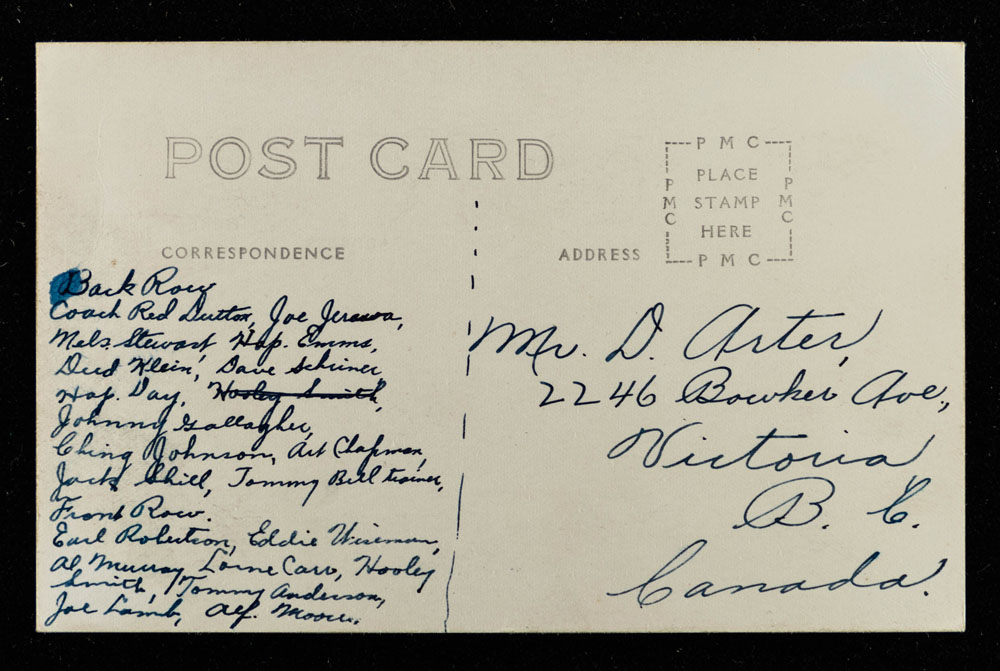 POST CARD
PMC
PLACE
STAMP
HERE
PMC
PMC
PMC
CORRESPONDENCE
ADDRESS
Back Row
Coach Red Dutton, Joe Jerawa,
Mels. Stewart, Hap. Emms,
Deed Klein, Dave Schriner
Hap. Day, Hooley Smith,
Johnny Gallagher,
Ching Johnson, Art Chapman,
Jack Shill, Tommy Bell trainer,
Front Row.
Earl Robertson, Eddie Wiseman,
Al Murray Lorne Carr, Hooley
Smith, Tommy Anderson,
Joe Lamb, Alf. Moore.
Mr. D. Arter,
2246 Bowker Ave.,
Victoria
B. C.
Canada.